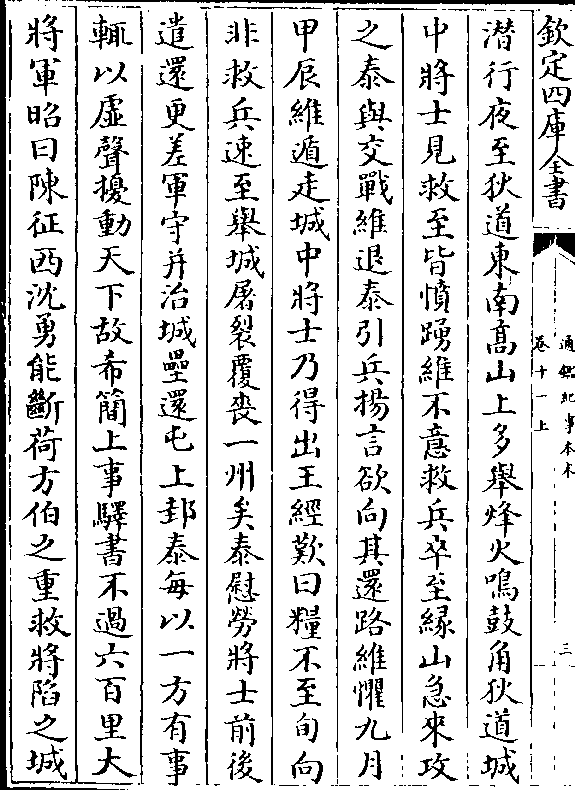 欽定四庫全書
通鑑紀事本末
卷十一上
三
潛行夜至狄道東南髙山上多舉烽火鳴鼓角狄道城
中將士見救至皆憤踴維不意救兵卒至縁山急來攻
之泰與交戰維退泰引兵揚言欲向其還路維懼九月
甲辰維遁走城中將士乃得出王經歎曰糧不至旬向
非救兵速至舉城屠裂覆喪一州矣泰慰勞將士前後
遣還更差軍守并治城壘還屯上邽泰每以一方有事
輒以虛聲擾動天下故希簡上事驛書不過六百里大
將軍昭曰陳征西沈勇能斷荷方伯之重救將陷之城